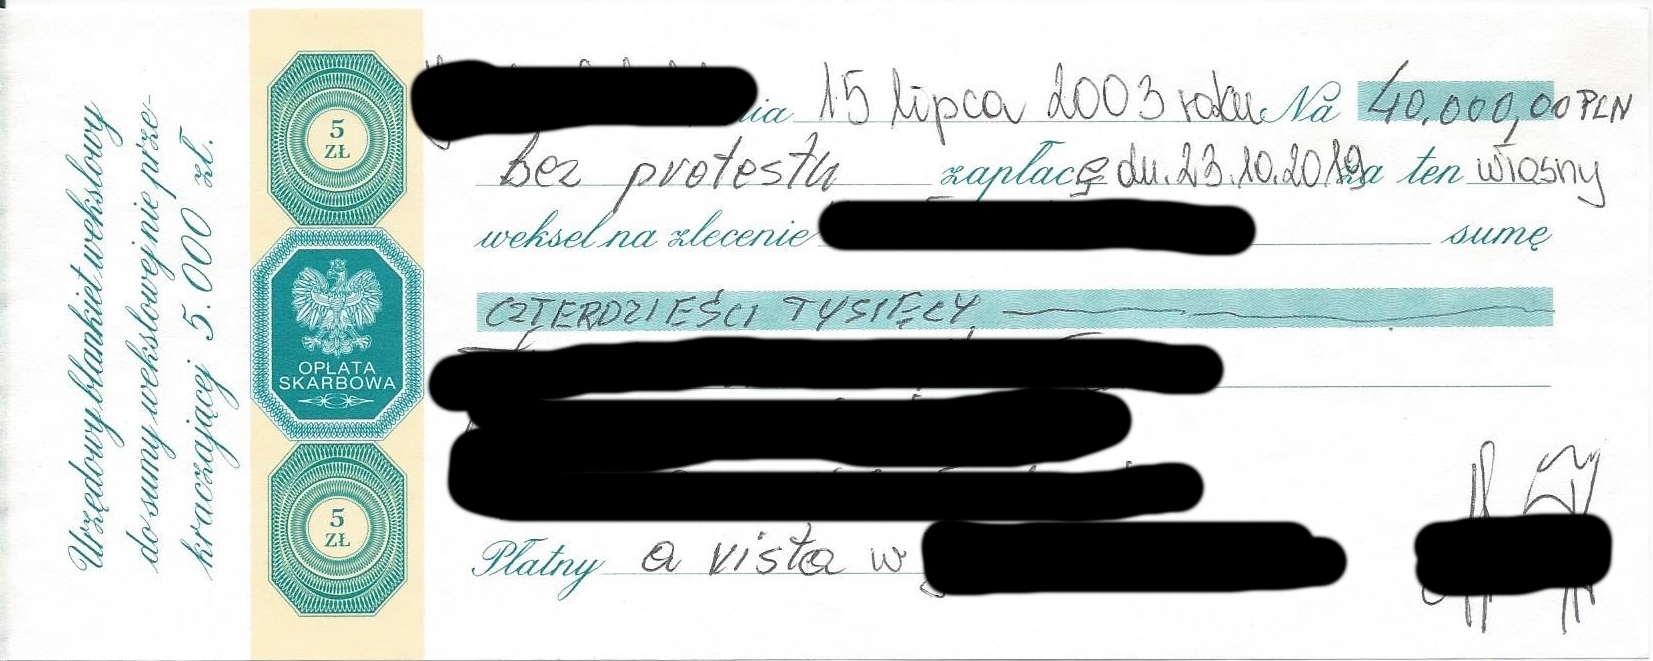 Urzędowy blankiet wekslowy
do sumy wekslowej nie prze-
kraczającej 5.000 zł.
5
ZŁ
OPŁATA
SKARBOWA
5
ZŁ
nia 15 lipca 2003 roku Na 40.000,00 PLN
bez protestu zapłacę dn. 23.10.2019 za ten własny
weksel na zlecenie sumę
CZTERDZIEŚCI TYSIĘCY
Płatny a vista w